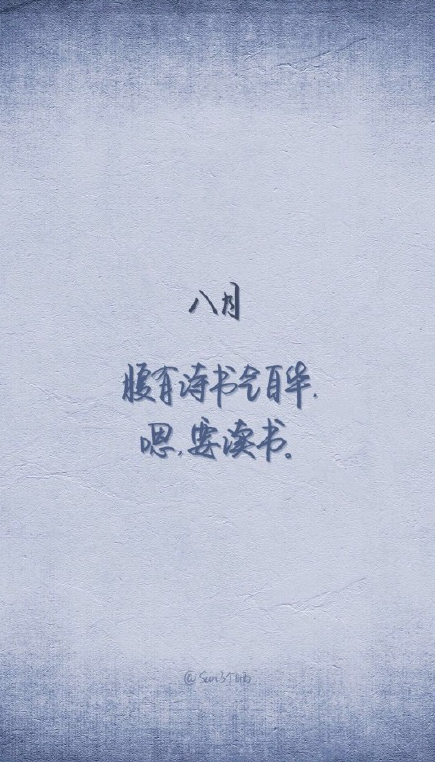 八月
腹有诗书气自华.
嗯,要读书。